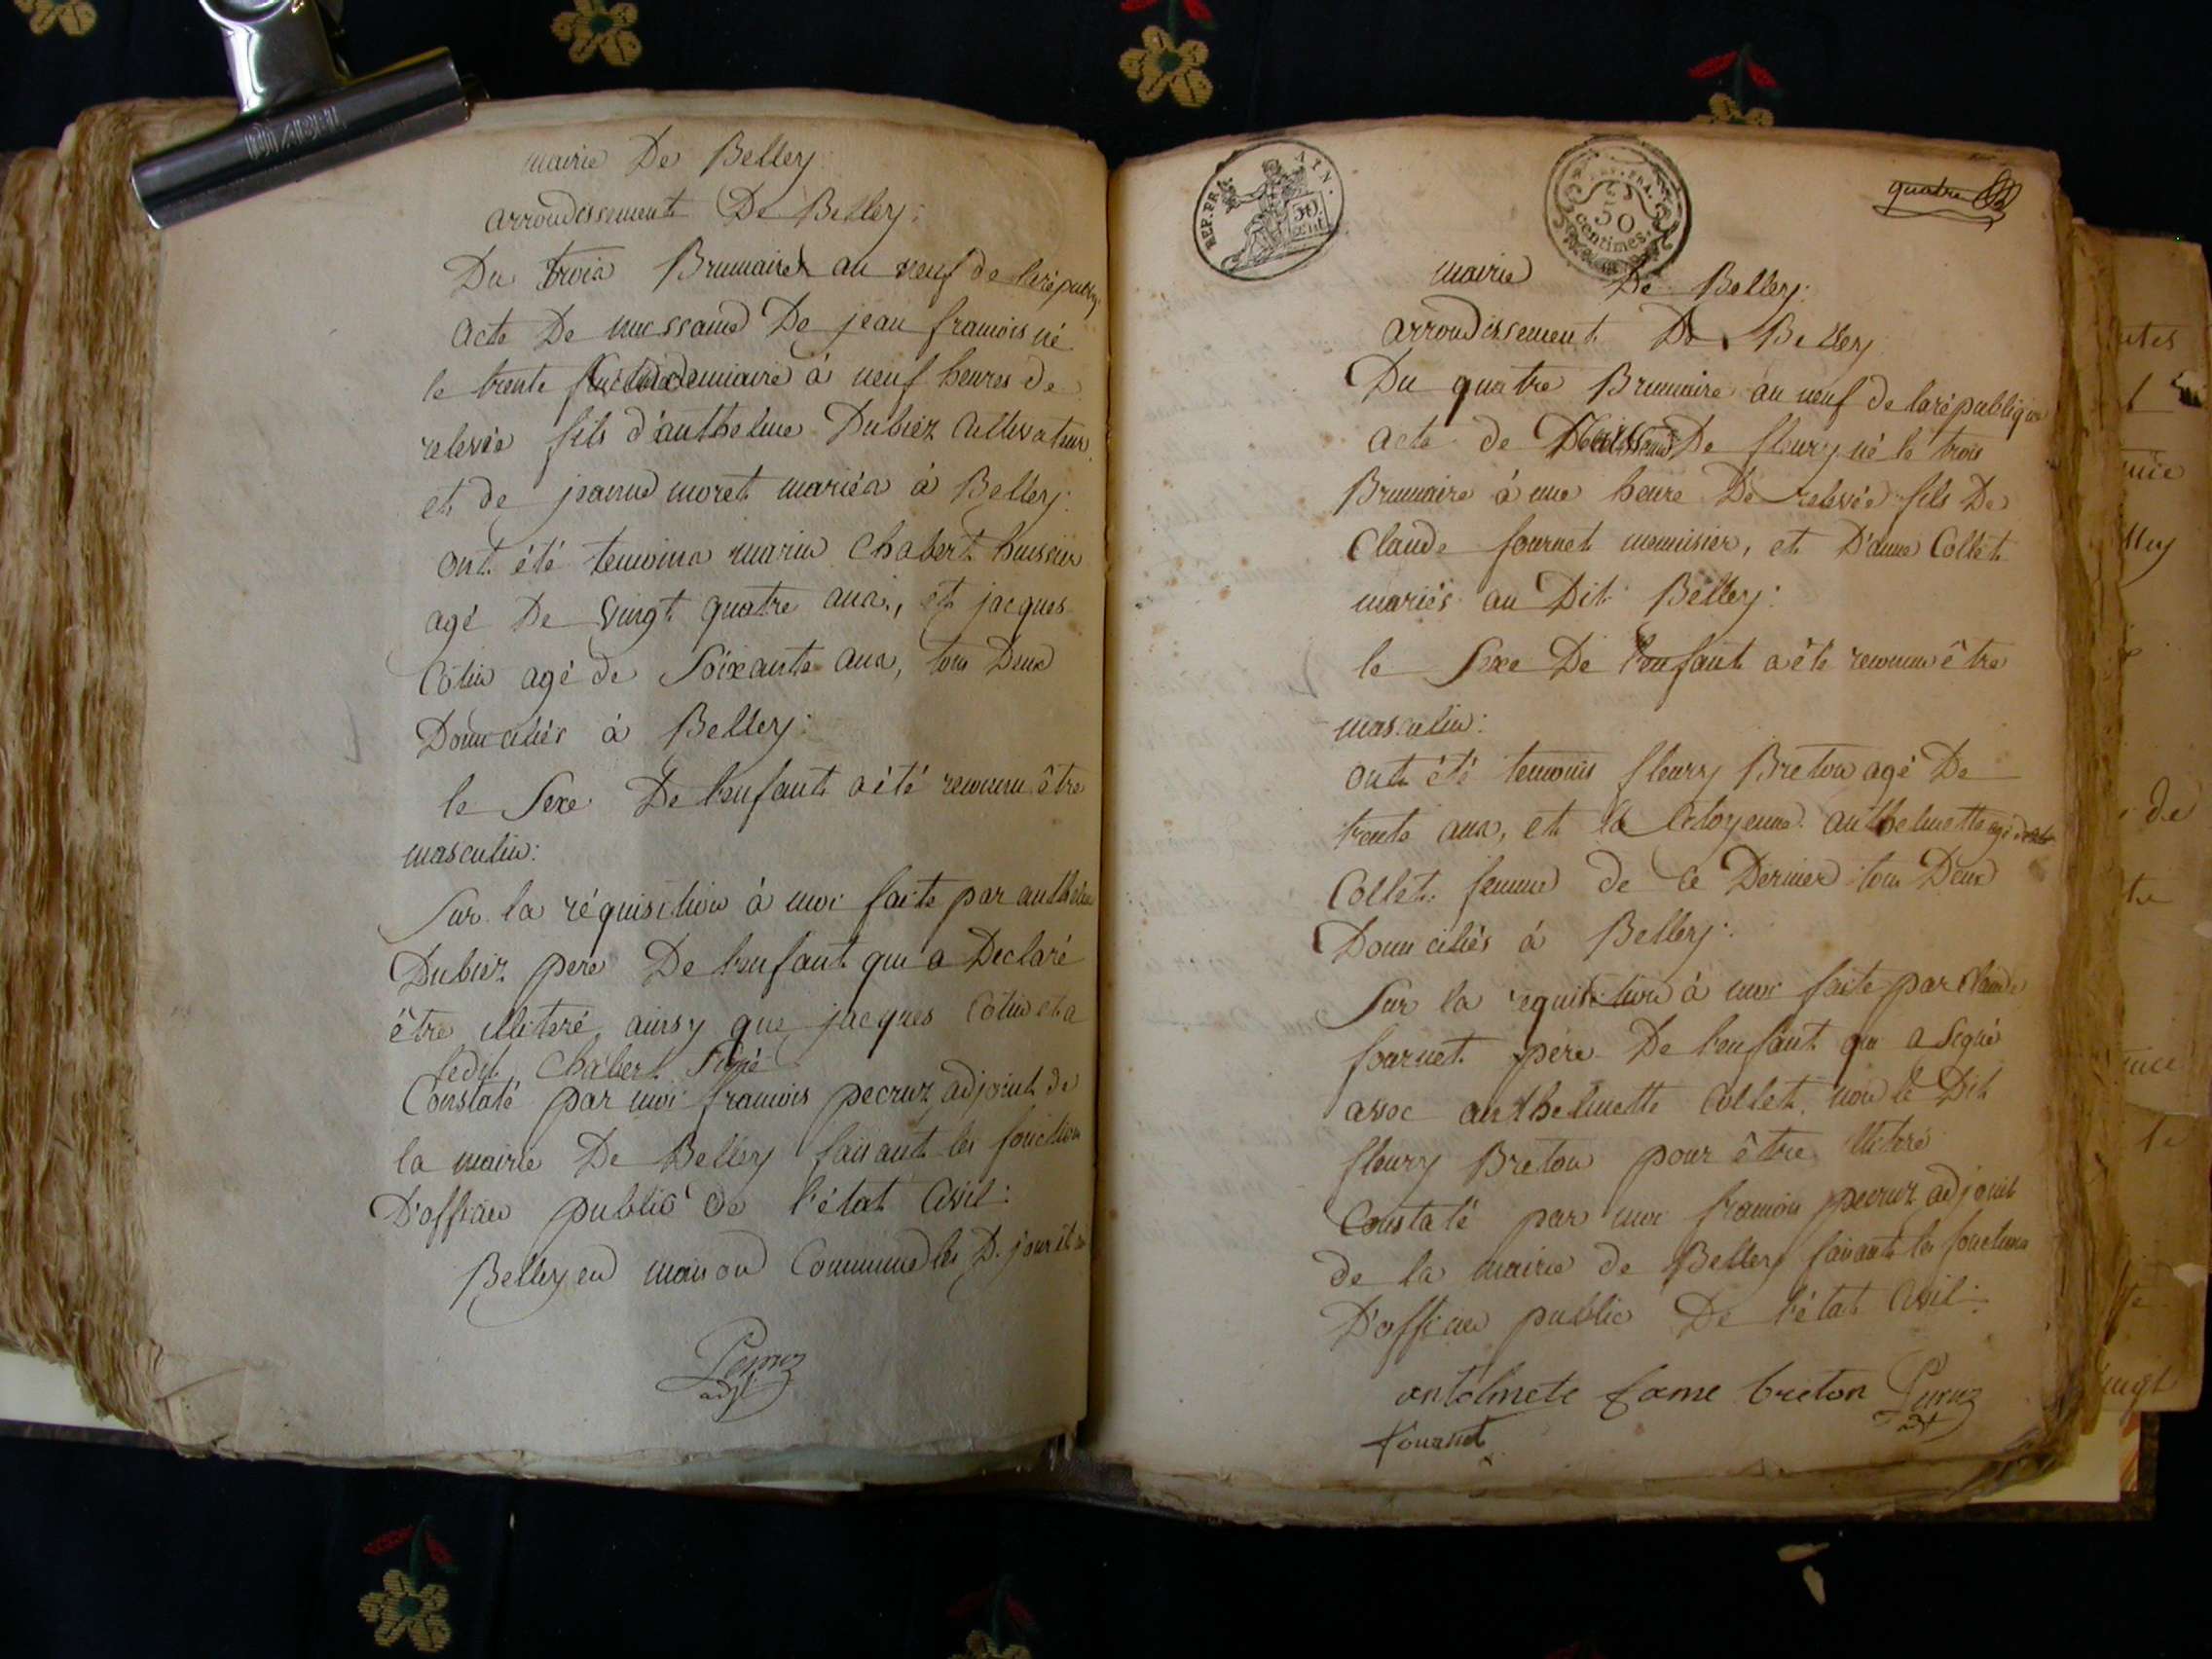 mairie De Belley.
arrondissement De Belley:
Du trois Brumaire an neuf de la répubq.
acte De naissance De jean francois né
le trente vendemiaire à neuf heures de
relevée fils d'anthelme Dubiez Cultivateur
et de jeanne moret mariés à Belley:
ont été temoins marin Chabert huissier
agé De vingt quatre ans, et jacques
Cotin agé de Soixante ans, tous Deux
Domiciliés à Belley:
le Sexe De l'enfant a été reconnu être
masculin:
Sur la réquisition à moi faite par anthelme
Dubiez pere De l'enfant qui a Declaré
être illiteré ainsy que jacques Cotin et a
ledit Chabert Signé
Constaté par moi francois pecruz adjoint de
la mairie De Belley faisant les fonction
D'officier public de l'état Civil:
Belley en maison Commune les D. jour et an
Pecruz
adjt.
REP. FRA. AIN.
50 cent.
REP. FRA.
50
centimes.
quatre
mairie De Belley:
arrondissement De Belley
Du quatre Brumaire an neuf de la république
acte de Naissance De fleury né le trois
Brumaire à une heure De relevée fils De
Claude fournet menuisier, et D'anne Collet
mariés au Dit Belley:
le Sexe De l'enfant a été reconnu être
masculin:
ont été temoins fleury Breton agé De
trente ans, et la Citoyenne anthelmette agé de
Collet femme de ce Dernier tous Deux
Domiciliés à Belley:
Sur la requisition à moi faite par Claude
fournet père De l'enfant qui a Signé
avec anthelmette Collet, non le Dit
fleury Breton pour être illiteré
Constaté par moi francois pecruz adjoint
de la mairie de Belley faisant les fonctions
D'officier public De l'état Civil:
antelmete fame breton Pecruz
fournet